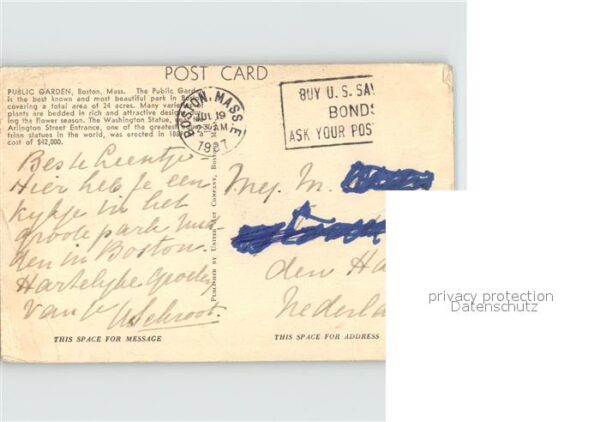 POST CARD
PUBLIC GARDEN, Boston, Mass. The Public Gard
is the best known and most beautiful park in Bos
covering a total area of 24 acres. Many variet
plants are bedded in rich and attractive design
ing the flower season. The Washington Statue,
Arlington Street Entrance, one of the greatest
trian statues in the world, was erected in 18
cost of $42,000.
BOSTON, MASS.
JUL 19
AM
BUY U.S. SAV
BONDS
ASK YOUR POS
Beste Leentje
Hier heb je een
kijkje in het
groote park mid
den in Boston.
Hartelijke Groeten
van
PUBLISHED BY UNITED ART COMPANY, BOSTON, MASS.
Mej. M.
den Ha
Nederla
THIS SPACE FOR MESSAGE
THIS SPACE FOR ADDRESS
privacy protection
Datenschutz